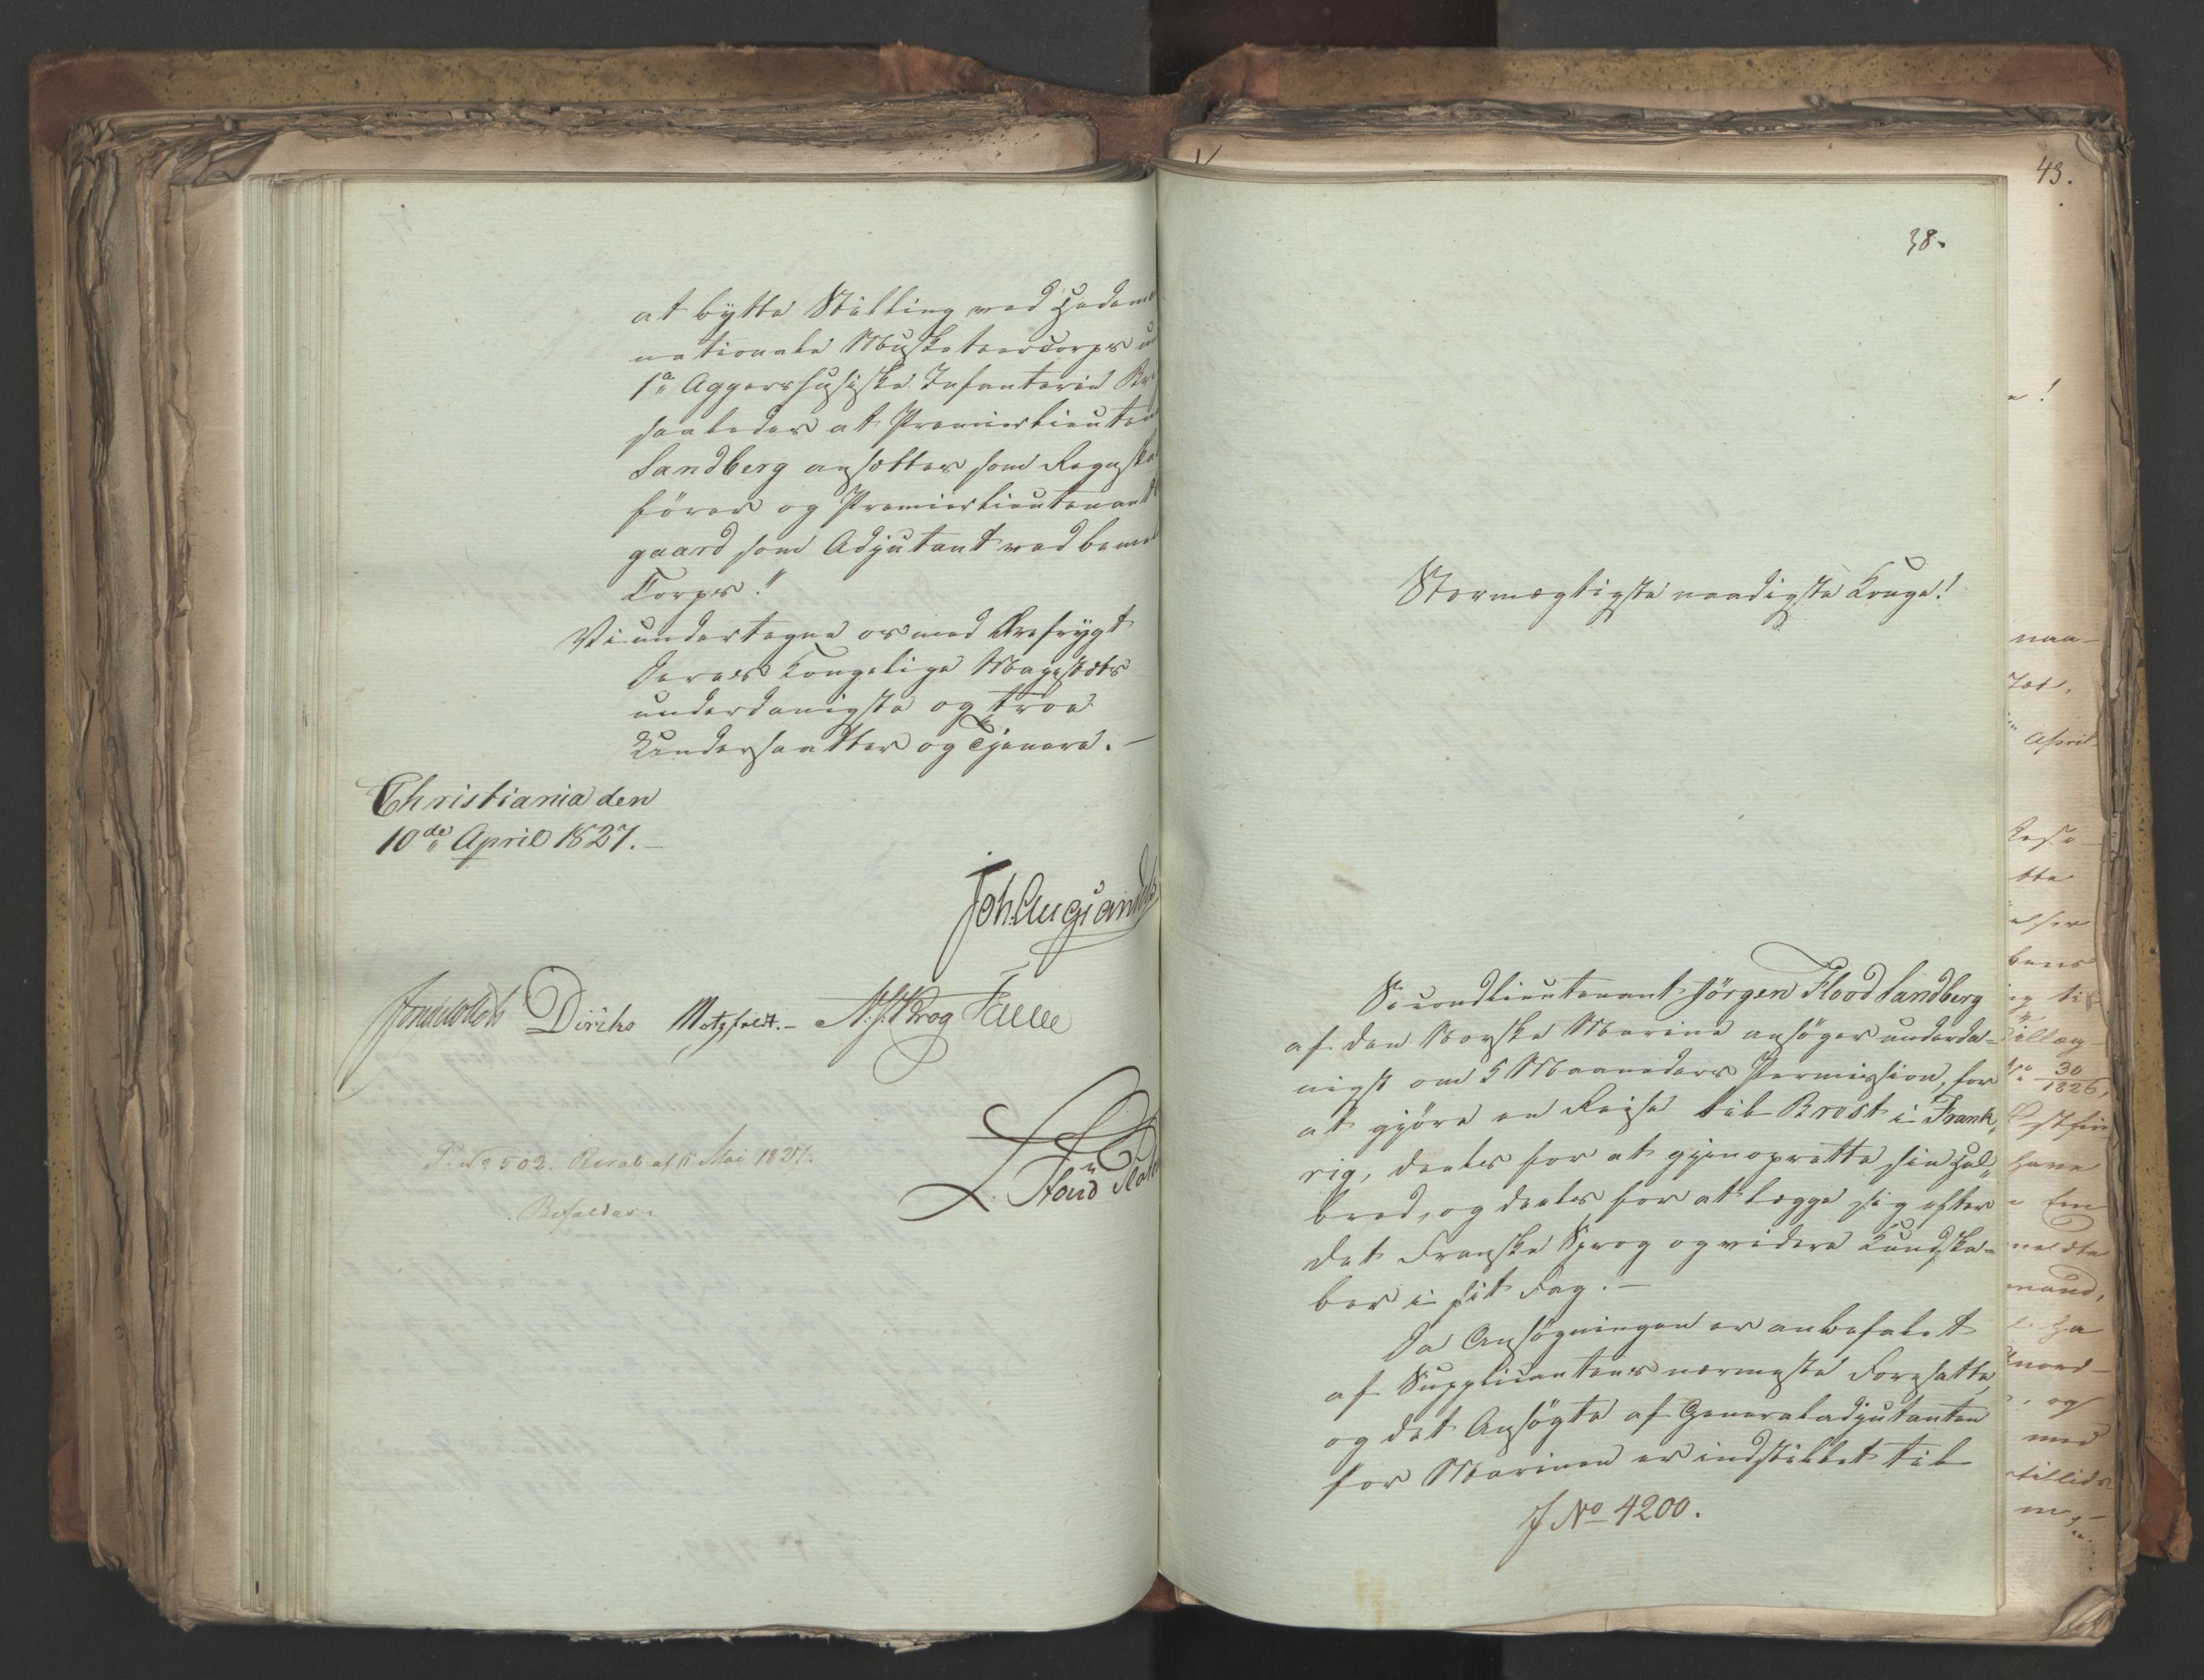 at bytte Stilling ved Hedem
nationale Musketeercorps
1ste Aggershusiske Infanterie Br
saaledes at Premierlieuten
Sandberg ansættes som Regnska
fører og Premierlieutenant
gaard som Adjutant ved bem
Corps."
Vi undertegne os med Ærefrygt
Deres Kongelige Majestæts
underdanigste og troe
Undersaatter og Tjenere. —
Christiania den
10de April 1827. —
Joh. Aug: Sand
Diriks Motzfeldt. — N. J. Krog Falle
P. No 502. Resol: af 11 Mai 1827.
Bifaldes.
43.
38.
Stormægtigste naadigste Konge!
Secondlieutenant Jørgen Flood Sandberg
af den Norske Marine ansøger underda-
nigst om 5 Maaneders Permission, for
at gjøre en Reise til Brest i Frank,
rig, deels for at gjenoprette sin Hel,
bred, og deels for at lægge sig efter
det Franske Sprog og videre Kundska-
ber i sit Fag. —
Da Ansøgningen er anbefalet
af Supplicantens nærmeste Foresatte,
og det Ansøgte af Generaladjutanten
for Marinen er indstillet til
J No 4200.
naa-
April
tte
elser
30
1826,
have
mand,
, og
med